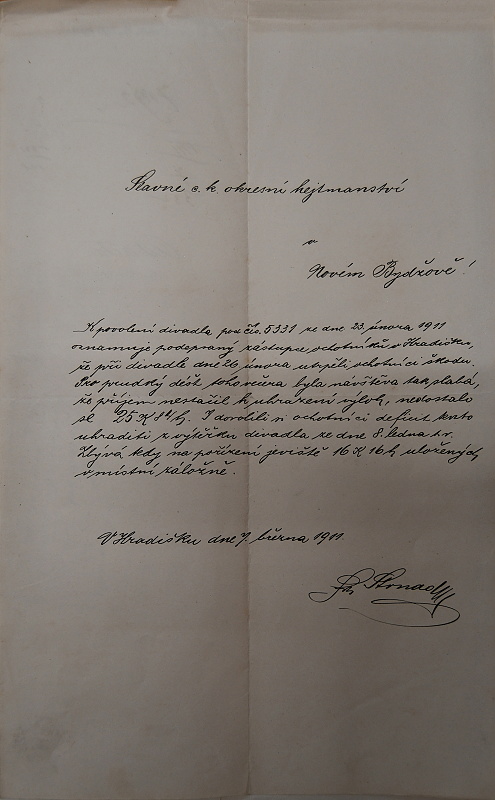 Slavné c. k. okresní hejtmanství
v
Novém Bydžově!
K povolení divadla pod čís. 5331 ze dne 23. února 1911
oznamuje podepsaný zástupce ochotníků v Hradišku,
že při divadle dne 26 února utrpěli ochotníci škodu.
Pro prudký déšť toho večera byla návštěva tak slabá,
že příjem nestačil k uhrazení výloh, nedostalo
se 25 K 84 h. I dovolili si ochotníci deficit tento
uhraditi z výtěžku divadla ze dne 8. ledna t. r.
Zbývá tedy na pořízení jeviště 16 K 16 h uložených
v místní záložně.
V Hradišku dne 7. března 1911.
Strnad